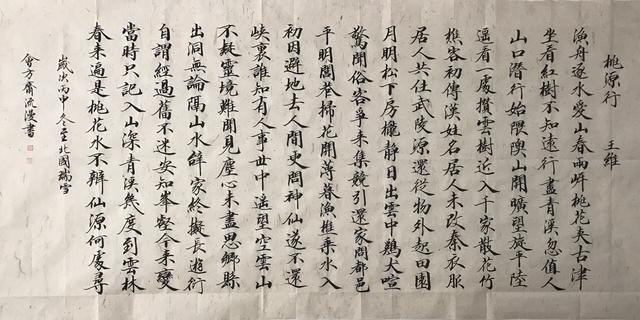 桃源行 王維
漁舟逐水愛山春兩岸桃花夾古津
坐看紅樹不知遠行盡青溪忽值人
山口潛行始隈隩山開曠望旋平陸
遥看一處攢雲樹近入千家散花竹
樵客初傳漢姓名居人未改秦衣服
居人共住武陵源還從物外起田園
月明松下房櫳靜日出雲中鷄犬喧
驚聞俗客爭来集競引還家問都邑
平明閭巷掃花開薄暮漁樵乘水入
初因避地去人間更問神仙遂不還
峽裏誰知有人事世中遥望空雲山
不疑靈境難聞見塵心未盡思鄉縣
出洞無論隔山水辭家終擬長遊衍
自謂經過舊不迷安知峯壑今来變
當時只記入山深青溪幾度到雲林
春来遍是桃花水不辨仙源何處尋
歲次丙申冬至北國瑞雪
會方齋流漫書